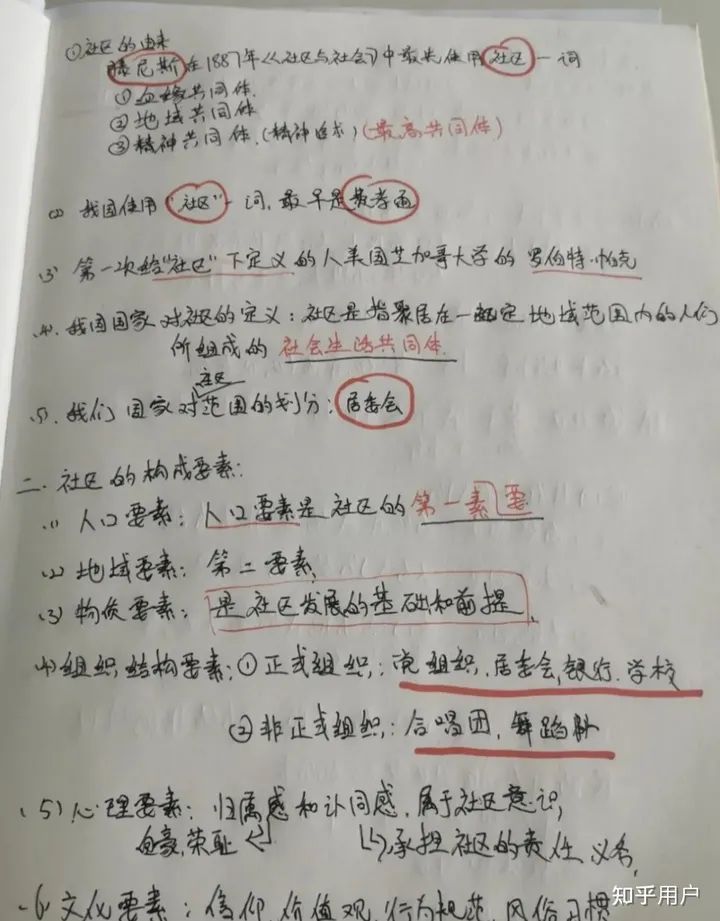 ①社区的由来
滕尼斯在1887年《社区与社会》中最先使用社区一词
①血缘共同体.
②地域共同体
③精神共同体.(精神追求)(最高共同体)
(2) 我国使用"社区"一词,最早是费孝通
(3) 第一次给"社区"下定义的人美国芝加哥大学的罗伯特·帕克
(4). 我国国家对社区的定义:社区是指聚居在一定地域范围内的人们
所组成的社会生活共同体.
社区
(5). 我们国家对范围的划分:居委会
二.社区的构成要素:
(1) 人口要素:人口要素是社区的第一素要
(2) 地域要素:第二要素,
(3) 物质要素:是社区发展的基础和前提.
(4)组织结构要素:①正式组织:党组织.居委会,银行.学校
②非正式组织:合唱团,舞蹈队
(5)心理要素:归属感和认同感,属于社区意识,
自豪,荣耻 承担社区的责任义务,
(6 文化要素:信仰 价值观,行为规范,风俗习惯
知乎用户